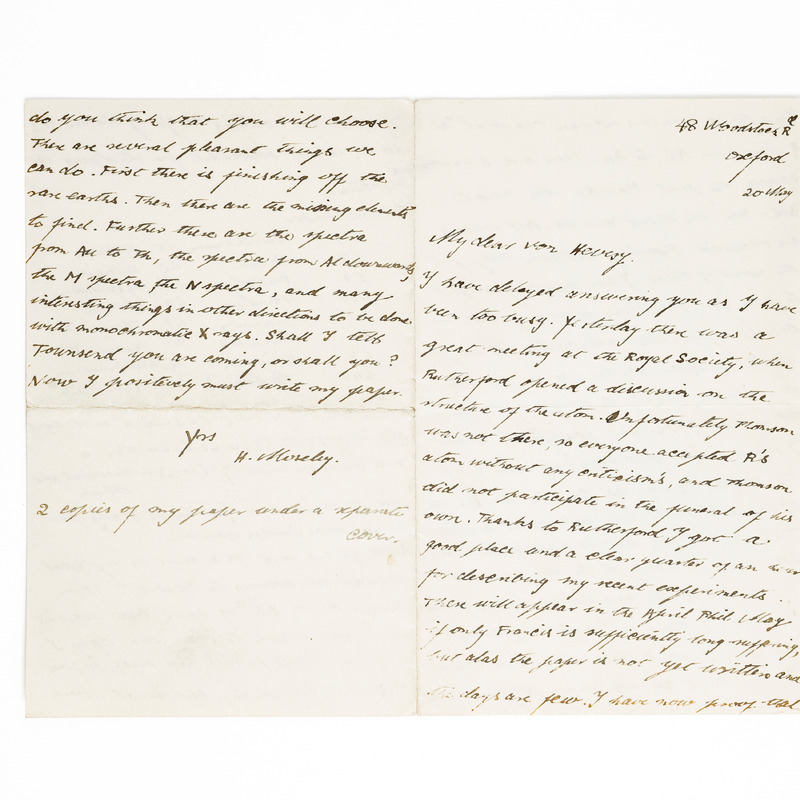 do you think that you will choose.
There are several pleasant things we
can do. First there is finishing off the
rare earths. Then there are the missing elements
to find. Further there are the spectra
from Au to Th, the spectra from Al downwards,
the M spectra, the N spectra, and many
interesting things in other directions to be done
with monochromatic X rays. Shall I tell
Townsend you are coming, or shall you?
Now I positively must write my paper.
Yrs
H. Moseley.
2 copies of my paper under a separate
cover.
48 Woodstock Rd
Oxford
20 May
My dear von Hevesy.
I have delayed answering you as I have
been too busy. Yesterday there was a
great meeting at the Royal Society, when
Rutherford opened a discussion on the
structure of the atom. Unfortunately Thomson
was not there, so everyone accepted R's
atom without any criticisms, and Thomson
did not participate in the funeral of his
own. Thanks to Rutherford I got a
good place and a clear quarter of an hour
for describing my recent experiments.
These will appear in the April Phil Mag
if only Francis is sufficiently long suffering,
but alas the paper is not yet written and
the days are few. I have now proof that